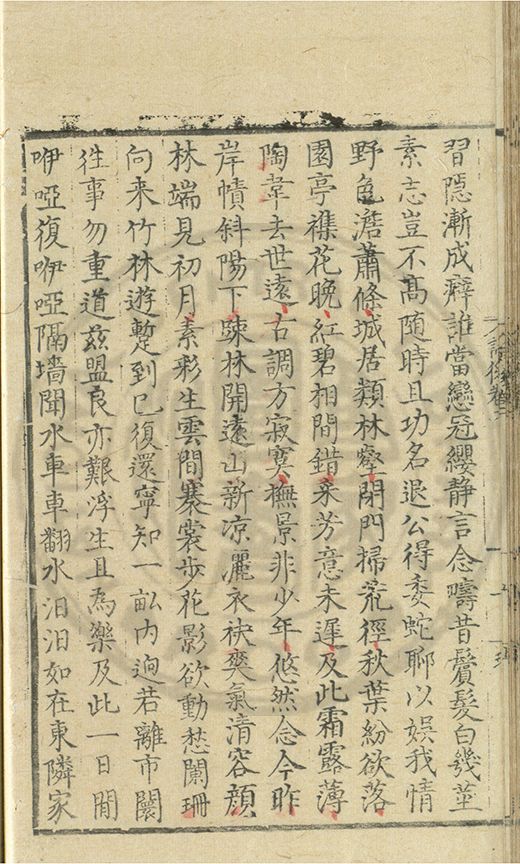 習隱漸成癖誰當戀冠纓静言念疇昔鬢髮白幾莖
素志豈不髙随時且功名退公得委蛇聊以娱我情
野色澹蕭條城居纇林壑閉門掃荒徑秋葉紛欲落
園亭襍花晩紅碧相間錯采芳意未遅及此霜露薄
陶韋去世遠古調方寂寞撫景非少年悠然念今昨
岸幘斜陽下踈林開遠山新凉灑衣袂奭氣清容顔
林端見初月素彩生雲間褰裳步花影欲動愁闌珊
向来竹林遊蹔到已復還寧知一畆内逈若離市闤
徃事勿重道兹盟良亦艱浮生且為樂及此一日閒
咿啞復咿啞隔墙聞水車車翻水汨汨如在東隣家